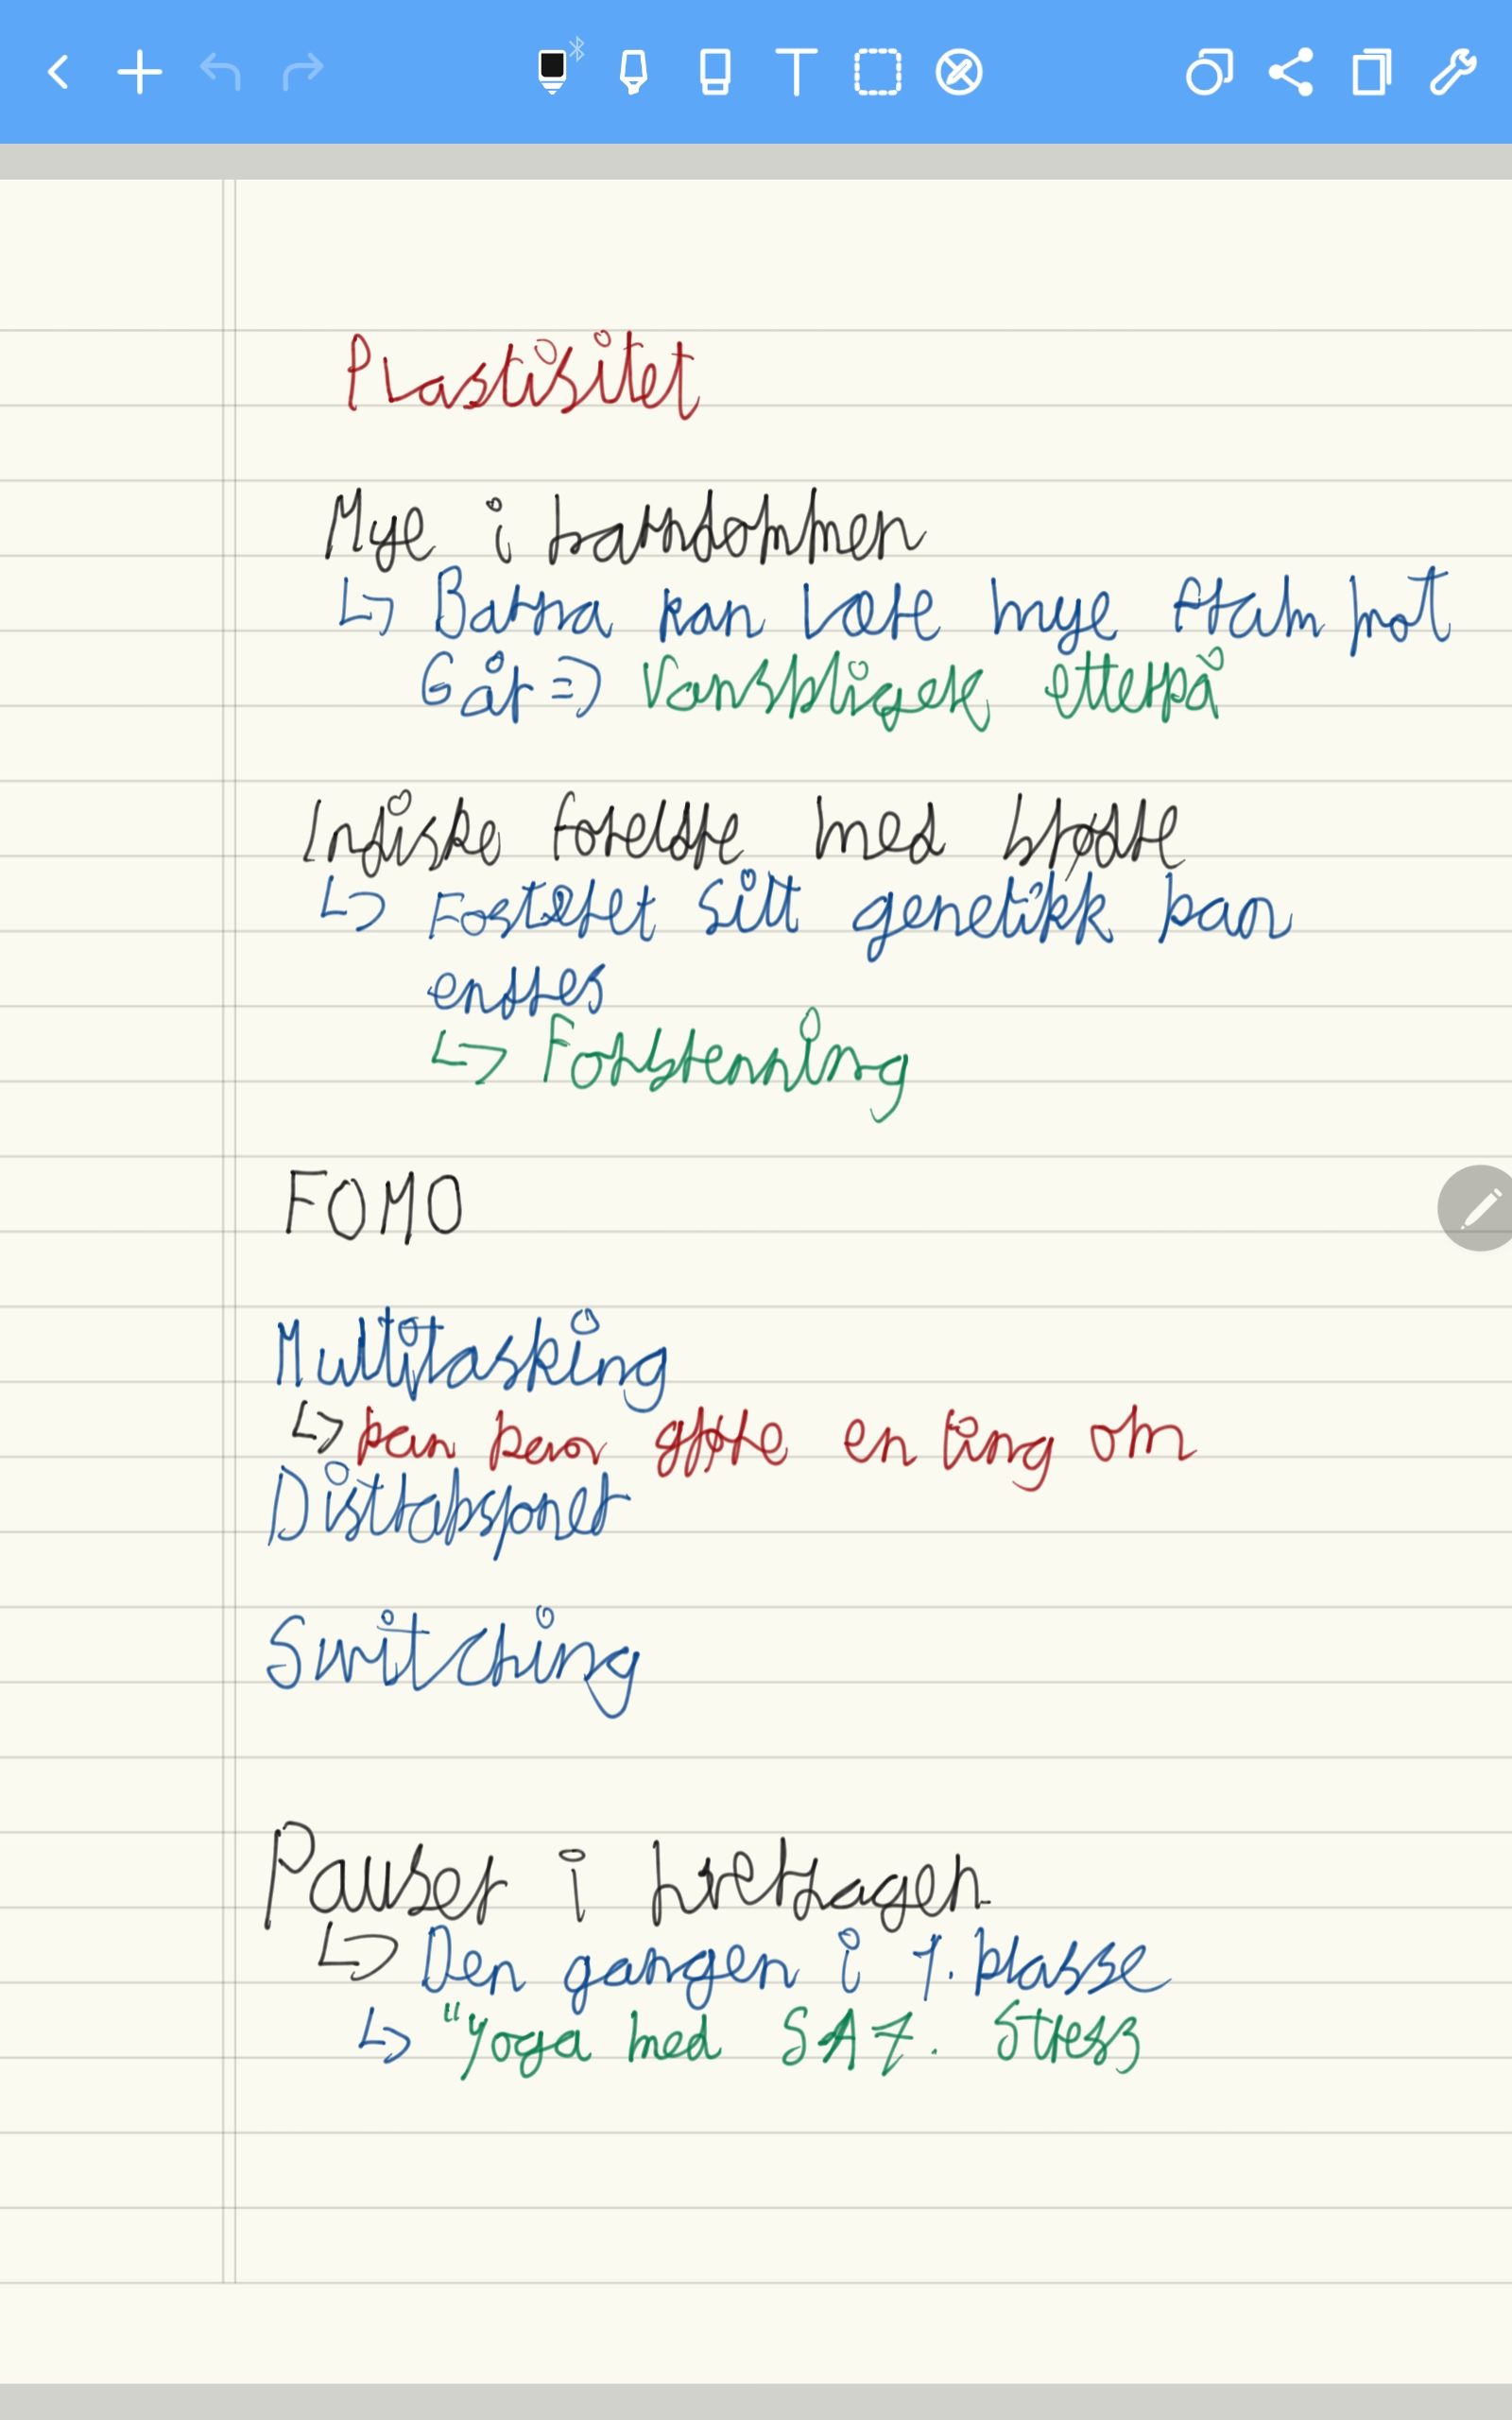 Plastisitet
Mye i barndommen
↳ Barna kan lære mye fram mot
6 år => Vanskligere etterpå
Infiske foreldre med
↳ Fosteret sitt genetikk kan
endres
↳ Forstenning
FOMO
Multitasking
↳ kan kun gjøre en ting om
Distraksjoner
Switching
Pauser i hverdagen
↳ Den gangen i 7. klasse
↳ "Yoga med SA7. Stress